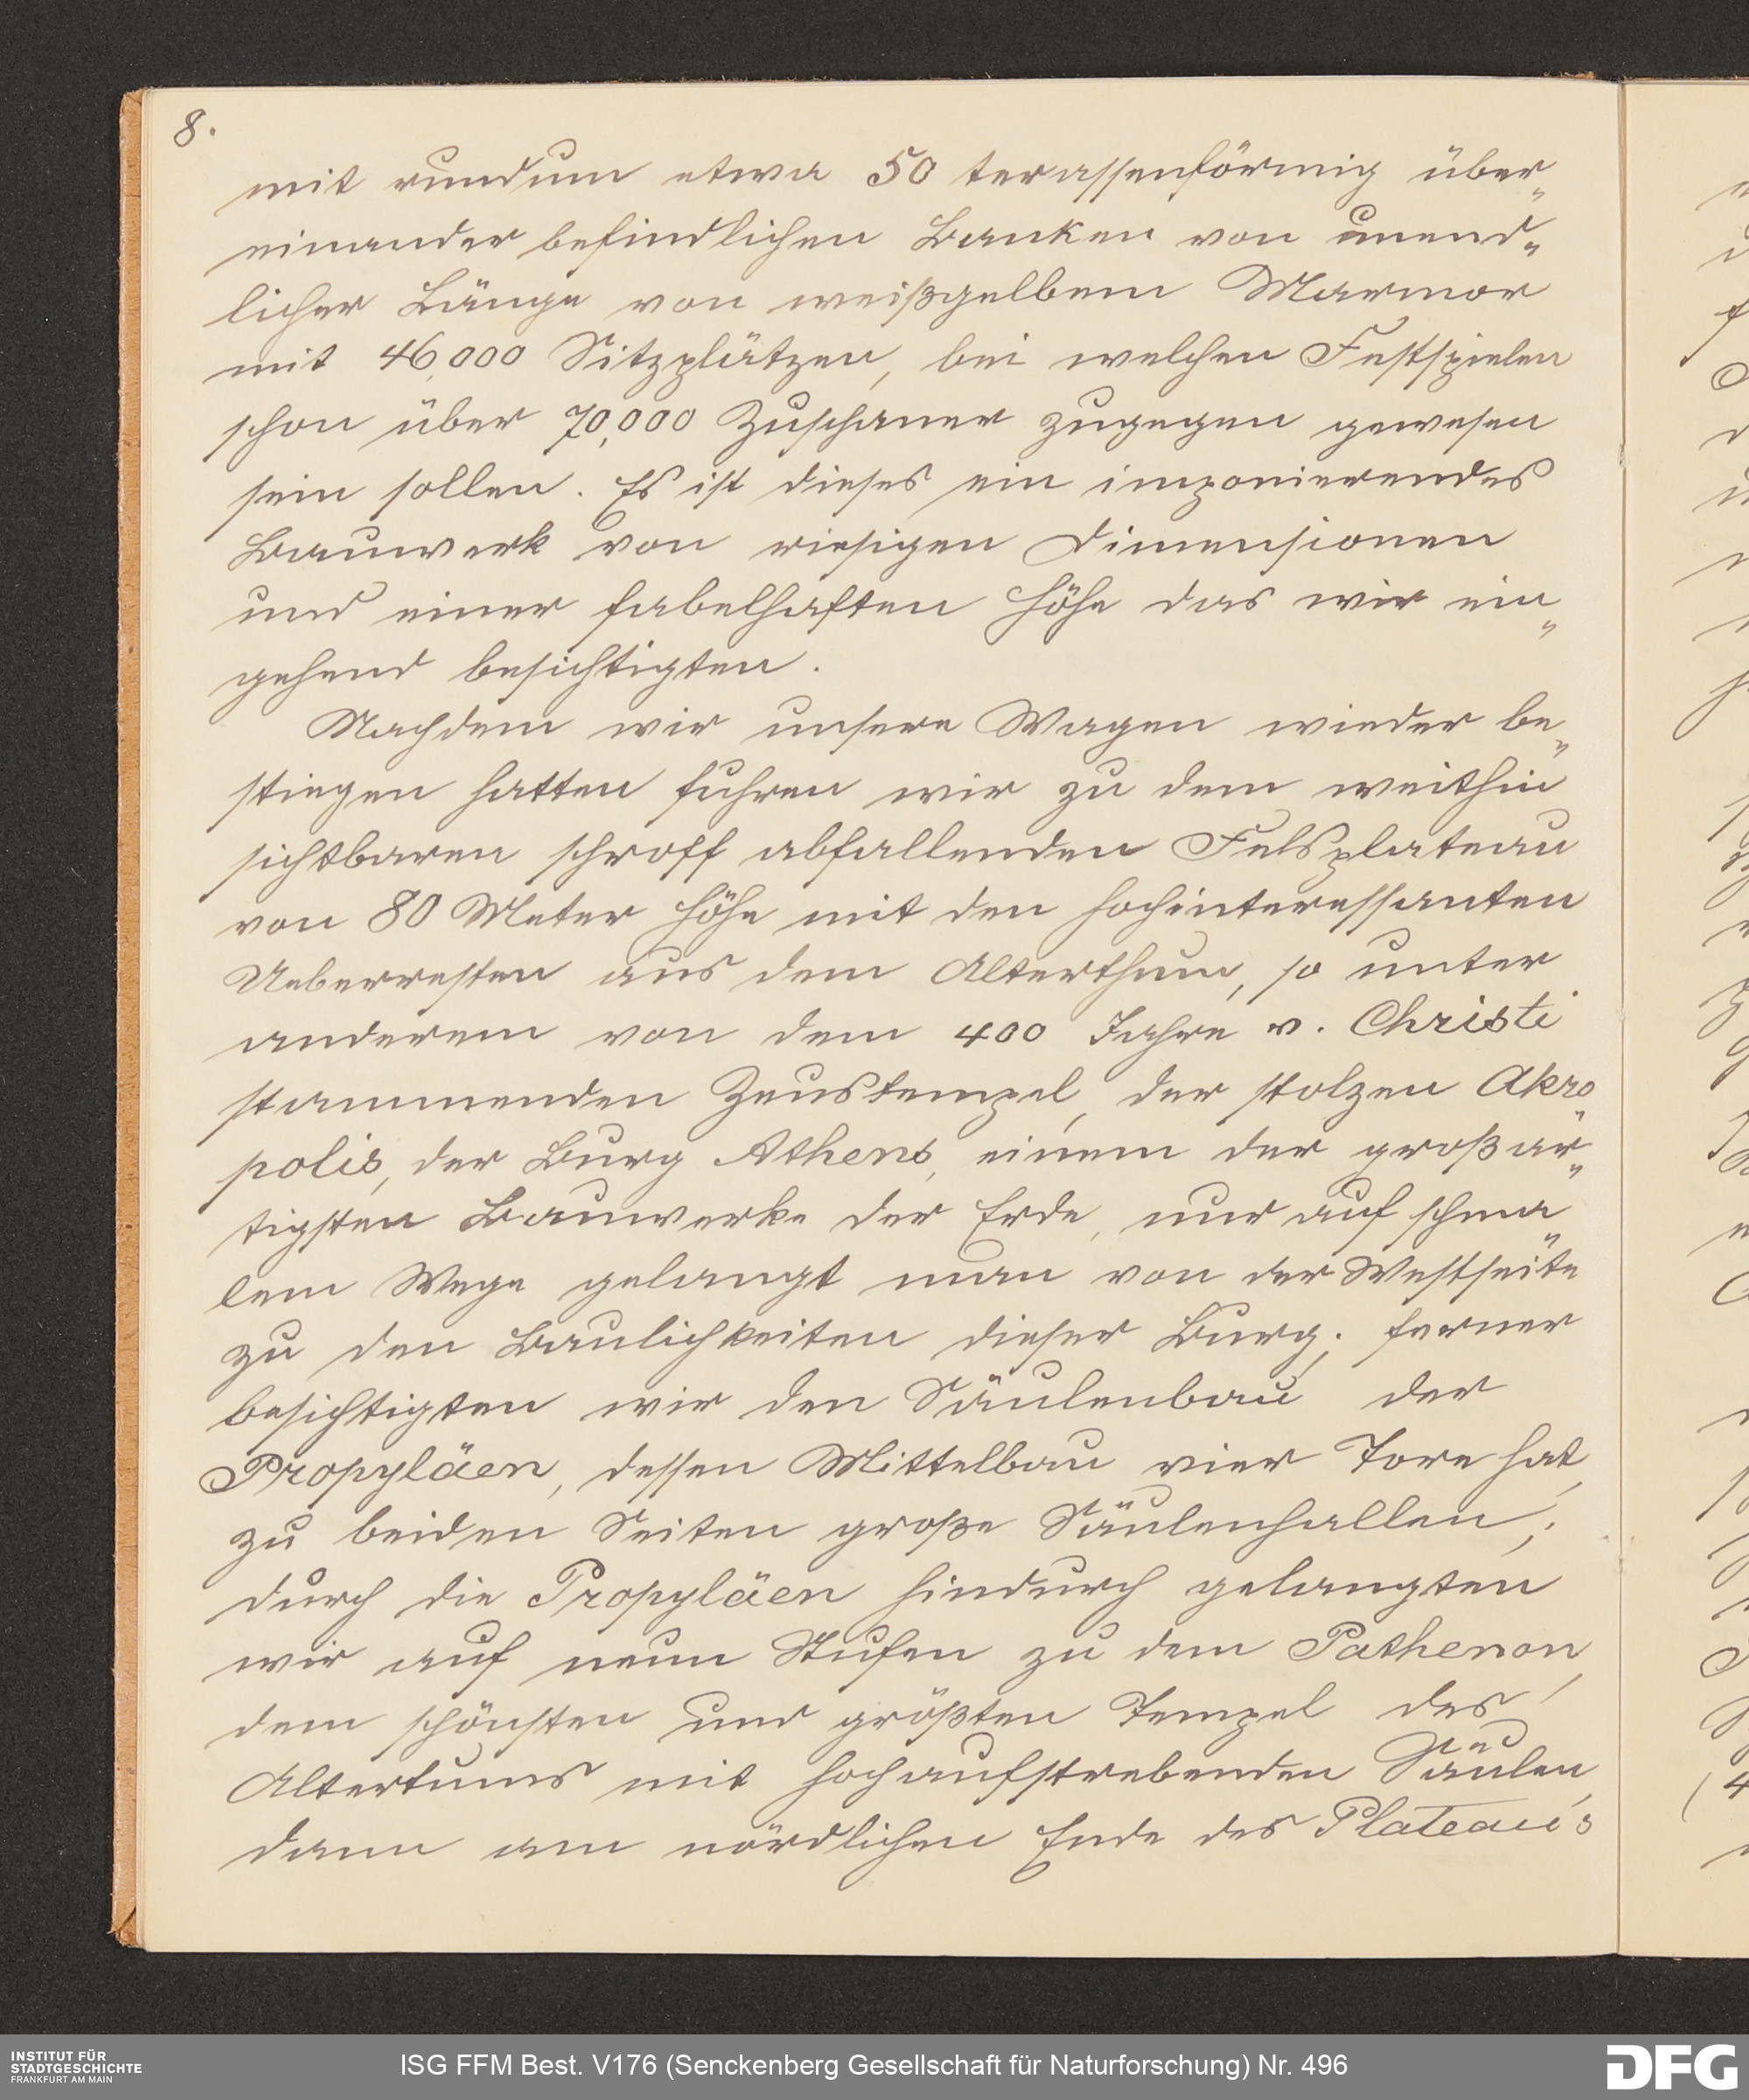 8.
mit rundum etwa 50 terassenförmig über„
einander befindlichen Banken von unend„
licher Länge von weißgelbem Marmor
mit 46,000 Sitzplätzen, bei welchen Festspielen
schon über 70,000 Zuschauer zugegen gewesen
sein sollen. Es ist dieses ein imponierendes
Bauwerk von riesigen Dimensionen
und einer fabelhaften Höhe das wir ein„
gehend besichtigten.
Nachdem wir unsere Wagen wieder be„
stiegen hatten fuhren wir zu dem weithin
sichtbaren schroff abfallenden Felsplateau
von 80 Meter Höhe mit den hochinteressanten
Ueberresten aus dem Alterthum, so unter
anderem von dem 400 Jahre v. Christi
stammenden Zeustempel, der stolzen Akro„
polis, der Burg Athens, einem der großar„
tigsten Bauwerke der Erde, nur auf schma„
lem Wege gelangt man von der Westseite
zu den Baulichkeiten dieser Burg; ferner
besichtigten wir den Säulenbau der
Propyläen, dessen Mittelbau vier Tore hat,
zu beiden Seiten große Säulenhallen;
durch die Propyläen hindurch gelangten
wir auf neun Stufen zu dem Pathenon,
dem schönsten und größten Tempel des
Altertums mit hochaufstrebenden Säulen,
dann am nördlichen Ende des Plateau's
INSTITUT FÜR
STADTGESCHICHTE
FRANKFURT AM MAIN
ISG FFM Best. V176 (Senckenberg Gesellschaft für Naturforschung) Nr. 496
DFG